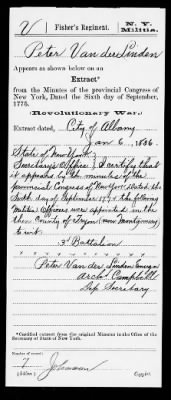 V
Fisher's Regiment.
N. Y. Militia.
Peter Van der Linden
Appears as shown below on an
Extract*
from the Minutes of the provincial Congress of
New York, Dated the Sixth day of September,
1775.
Revolutionary War.
Extract dated, City of Albany
Jan 6, 1836.
State of New York
Secretary's Office } I certify that
it appears by the minutes of the
provincial Congress of New York dated the
Sixth day of September 1775 the following
Militia Officers were appointed in the
then County of Tryon (now Montgomery)
to wit.
3d Battalion
Peter Van der Linden Ensign
Arch. Campbell
Dep Secretary
*Certified extract from the original Minutes in the Office of the
Secretary of State of New York.
Number of record:
7
Johnson
Copyist.